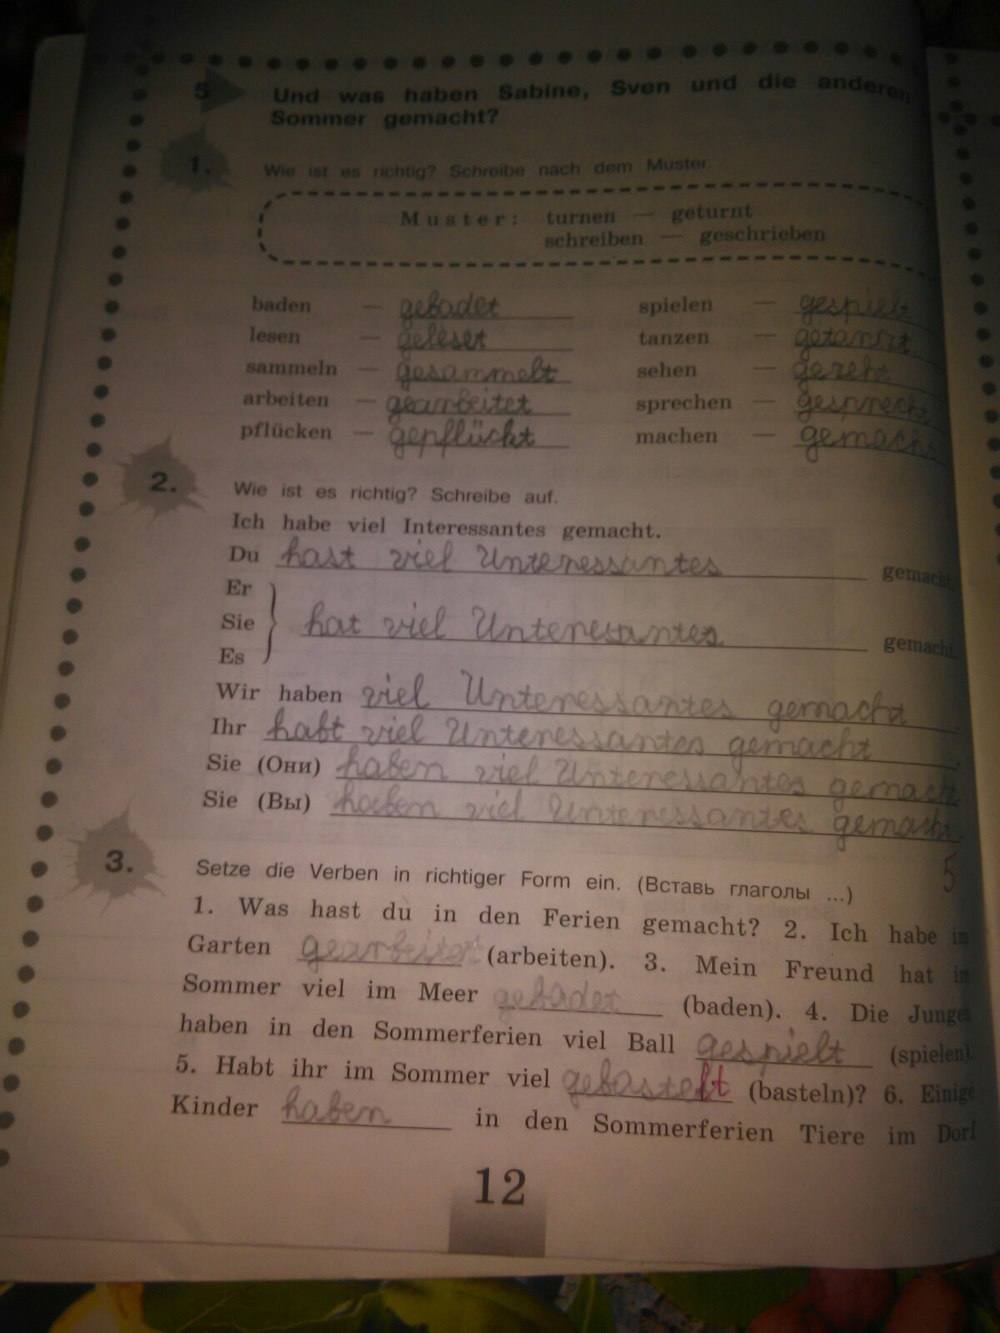 5 Und was haben Sabine, Sven und die anderen
Sommer gemacht?
1. Wie ist es richtig? Schreibe nach dem Muster.
Muster: turnen — geturnt
schreiben — geschrieben
baden — gebadet spielen — gespielt
lesen — geleset tanzen — getanzt
sammeln — gesammelt sehen — geseht
arbeiten — gearbeitet sprechen — gesprecht
pflücken — gepflückt machen — gemacht
2. Wie ist es richtig? Schreibe auf.
Ich habe viel Interessantes gemacht.
Du hast viel Unteressantes gemacht.
Er
Sie } hat viel Unteresantes gemacht.
Es
Wir haben viel Unteressantes gemacht
Ihr habt viel Unteressantes gemacht.
Sie (Они) haben viel Unteressantes gemacht
Sie (Вы) haben viel Unteressantes gemacht.
5
3. Setze die Verben in richtiger Form ein. (Вставь глаголы ...)
1. Was hast du in den Ferien gemacht? 2. Ich habe im
Garten gearbeitet (arbeiten). 3. Mein Freund hat im
Sommer viel im Meer gebadet (baden). 4. Die Jungen
haben in den Sommerferien viel Ball gespielt (spielen).
5. Habt ihr im Sommer viel gebastelt (basteln)? 6. Einige
Kinder haben in den Sommerferien Tiere im Dorf
12